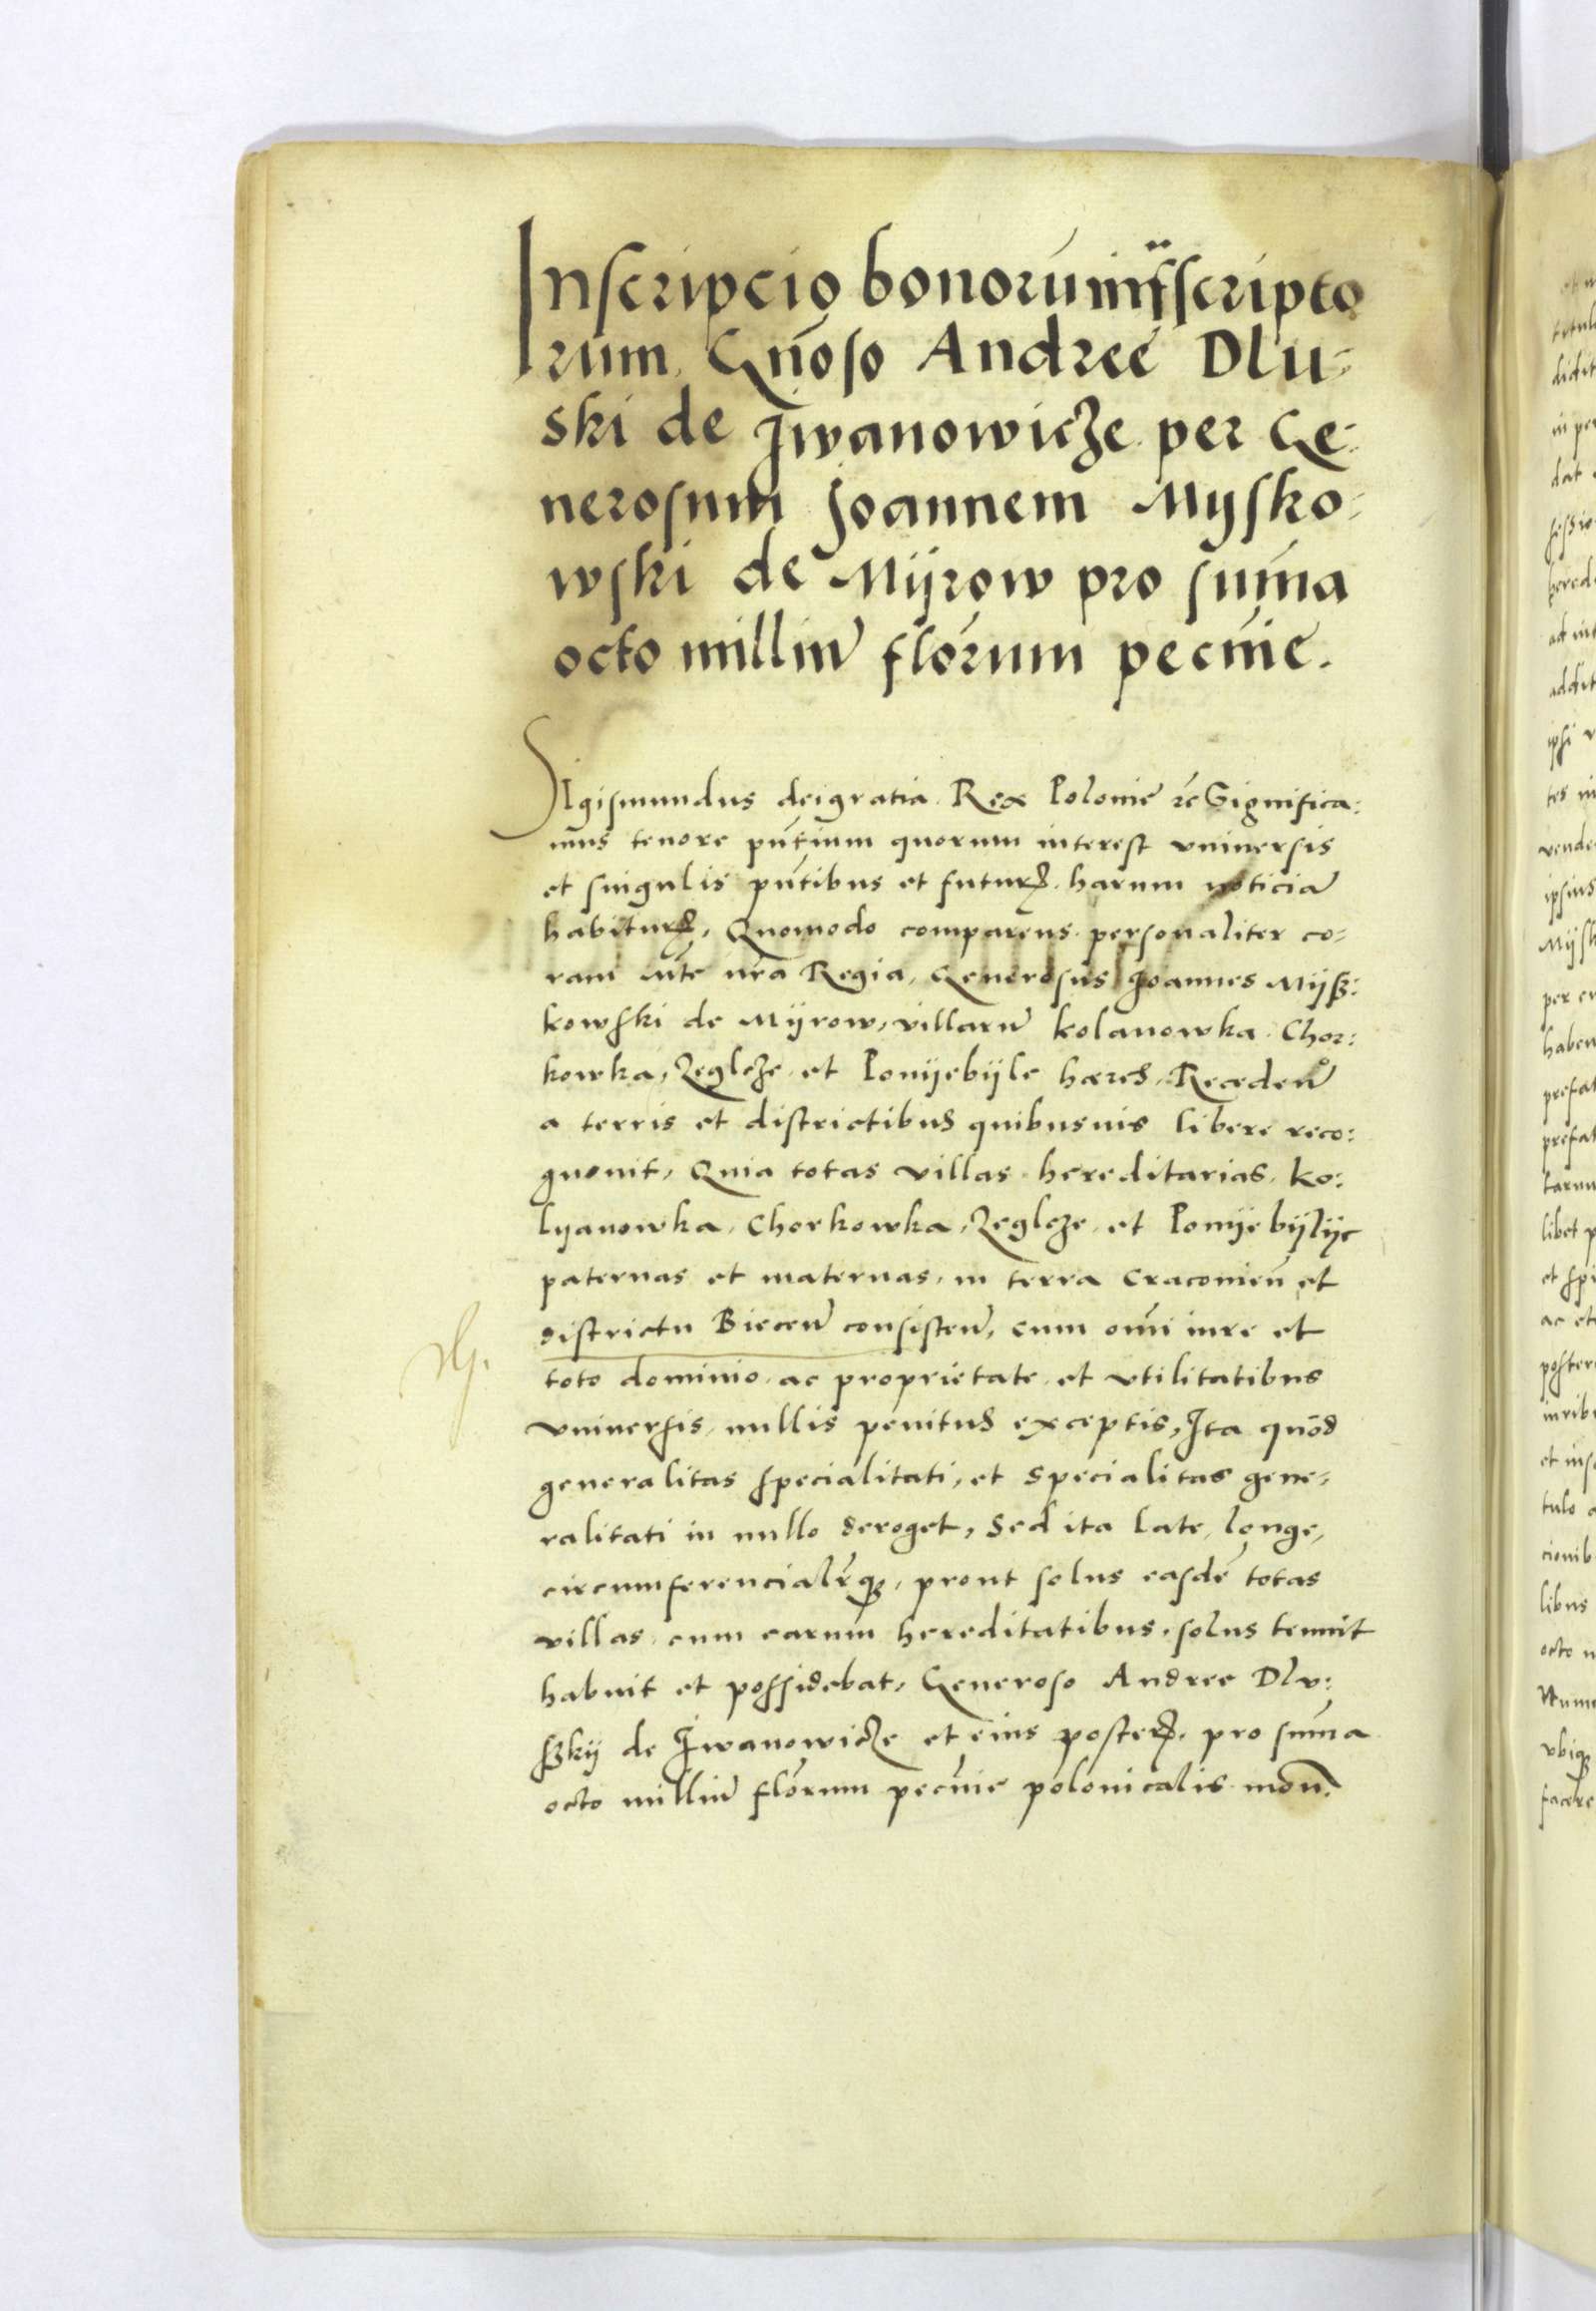 Inscripcio bonorū infrascripto
rum Gnōso Andree Dlu-
ski de Iwanowicze per Ge:
nerosum Joannem Mysko-
wski de Myrow pro sum̄a
octo milliū flōrum pecūie.
Sigismundus dei gratia Rex Polonie rc̄ Significa:
mus tenore pn̄tium quorum interest vniuersis
et singulis pn̄tibus et futurꝭ. harum noticiā
habiturꝭ, Quomodo comparens personaliter co-
ram Mte nr̄a Regia, Generosus Joannes Myß:
kowski de Myrow, villarū kolanowka Chor:
kowka, Zegleze et Ponyebyle hæres, Recedeñ
a terris et districtibus quibusuis libere reco:
gnouit, Quia totas villas hereditarias, ko:
lyanowka, Chorkowka, Zegleze, et Ponyebylye
paternas et maternas, in terra Cracouieñ et
districtu Bieceñ consisteñ, cum om̄i iure et
toto dominio ac proprietate et vtilitatibus
vniuersis, nullis penitus exceptis, Ita quōd
generalitas specialitati, et specialitas gene-
ralitati in nullo deroget, Sed ita late, longe,
circumferencialr̄qꝫ, prout solus easdē totas
villas cum earum hereditatibus, solus tenuit
habuit et possidebat, Generoso Andree Dlu:
szky de Iwanowicze et eius posterꝭ, pro sum̄a
octo milliū flōrum pecūie polonicalis moñ.